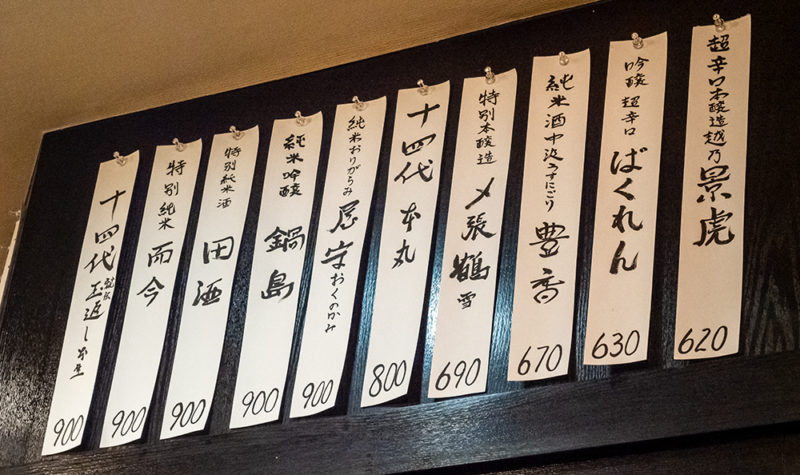 超辛口本醸造越乃景虎
620
吟醸 超辛口 ばくれん
630
純米酒中汲うすにごり 豊香
670
特別本醸造 〆張鶴 雪
690
十四代 本丸
800
純米おりがらみ 屋守 おくのかみ
900
純米吟醸 鍋島
900
特別純米酒 田酒
900
特別純米 而今
900
十四代 玉返し 本生
900